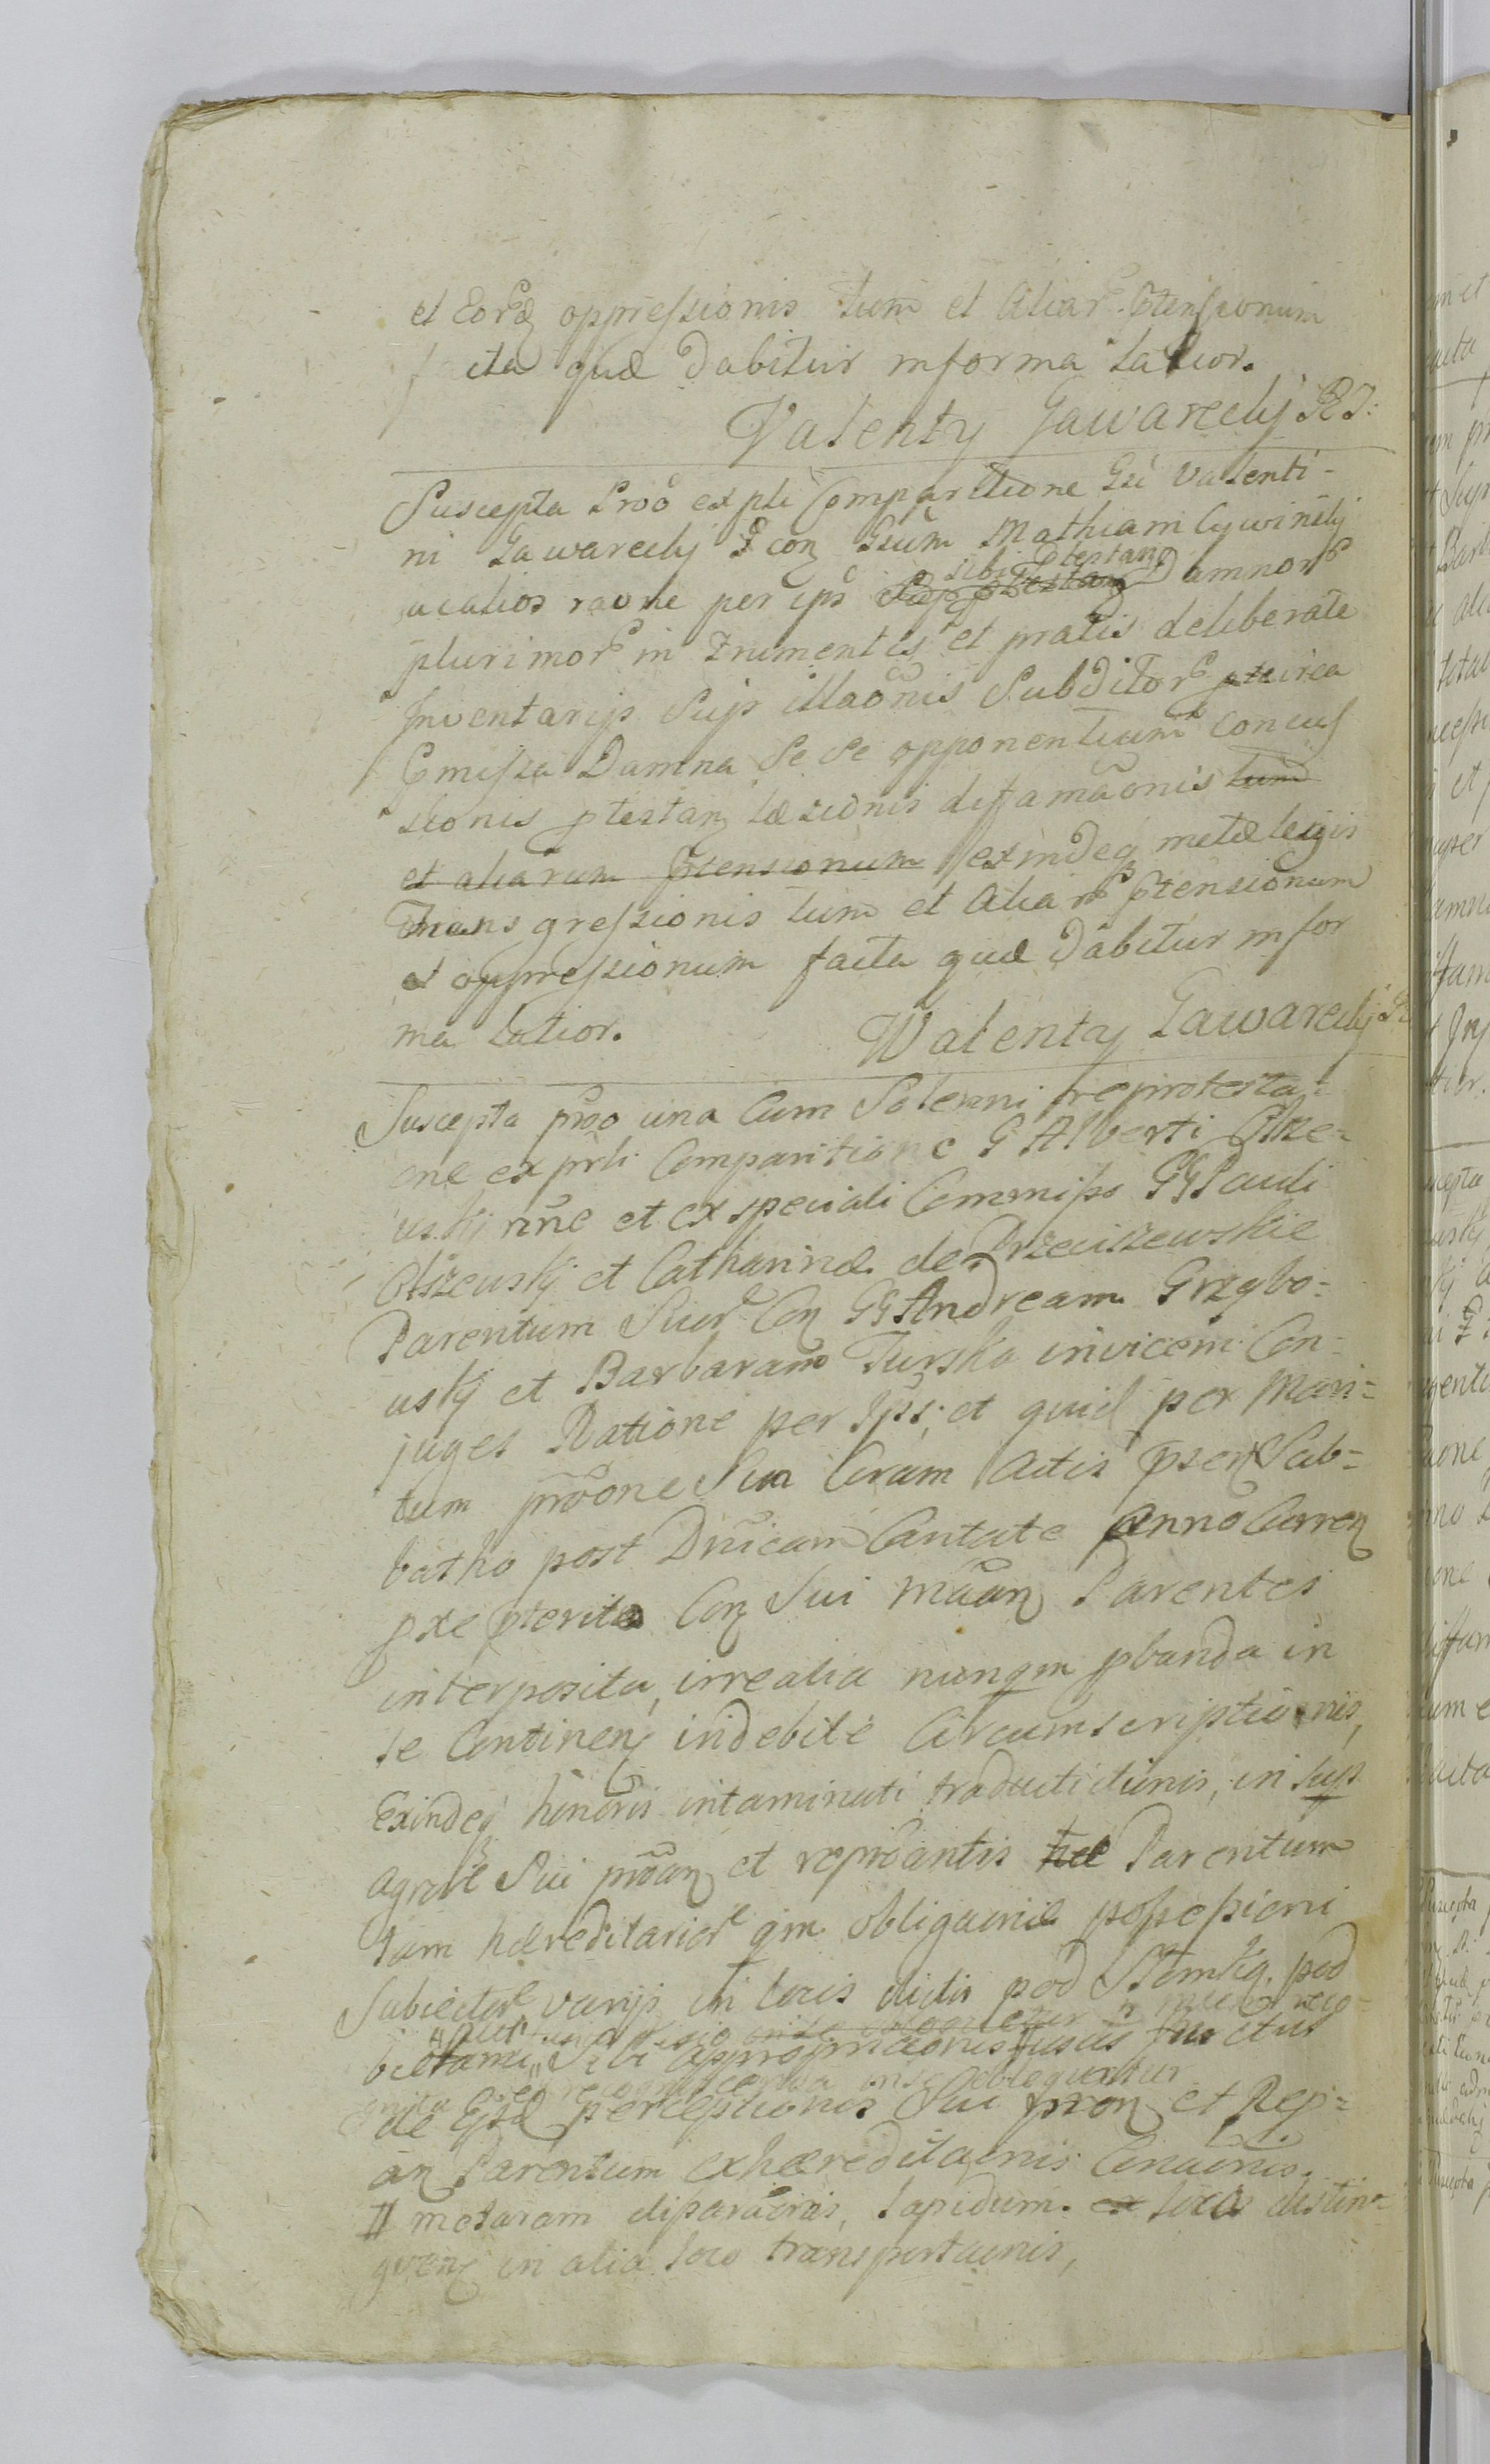 et Eorq oppressionis tum et Aliar ptensionum
facta quæ dabitur in forma latior.
Valenty Gawarecky
Suscepta Proo ex pli Comparitione Gsi Valenti-
ni Gawarecky con Gsum Mathiam Cywinsky
ac alios raone per ips sibi ptestan Damnor
plurimor in Frumentis et pratis deliberate
Inventarijs Sujs illaonis Subditor circa
Emissa Damna Se Se opponentium Concus
sionis ptestan læsionis diffamaonis tum
et aliarum ptensionum exindeq metæ legis
Transgressionis tum et Aliar ptensionum
et oppressionum facta quæ dabitur in for
ma latior.
Walenty Gawarecky
Suscepta proo una Cum Solenni reprotesta-
one ex prli Comparitione G Alberti Olsze-
wskj nne et ex speciali Commisso GG Pauli
Olszewskj et Catharinæ de Przeciszewskie
Parentum Suor Con GG Andream Grzybo-
wskj et Barbaram Turska invicem Con-
juges Ratione per Ips, et quid per Mari-
tum proone Sua Coram Actis psen Sab-
batho post Dnicam Cantate Anno Curren
pxe pterito Con Sui Parentes
interposita, irrealia nunqm pbanda in
se Continen indebitè Circumscriptionis,
Exindeq honoris intaminati traductionis, in
agror Sui proan et reproantis Parentum
tam hæreditarior qm obligaoniæ possessioni
Subiector varijs in locis dictis pod Slomką, pod
Sibi appropriaonis fructus
de Eisd perceptionis Sui et Rep-
an Parentum exhæreditaonis Conaonis.
metarum disparaonis, lapidum. locis distin-
guen in alia loco transportaonis,